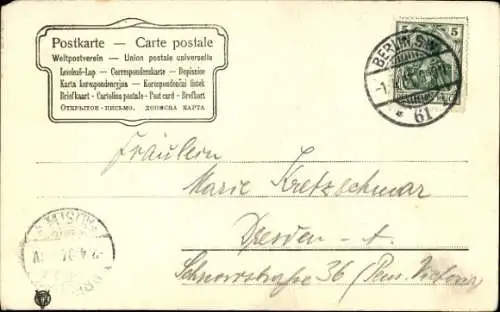 Postkarte — Carte postale
Weltpostverein — Union postale universelle
Levelező-Lap — Correspondenzkarte — Dopisnice
Karta korespondencyjna — Korespondenční lístek
Briefkaart - Cartolina postale - Post card - Brefkort
Открытое письмо.
5 5
BERLIN S.W.
* 61
Fräulein
Marie Kretzschmar
Dresden - A.
Schnorrstraße 36 (Pens. Victoria)